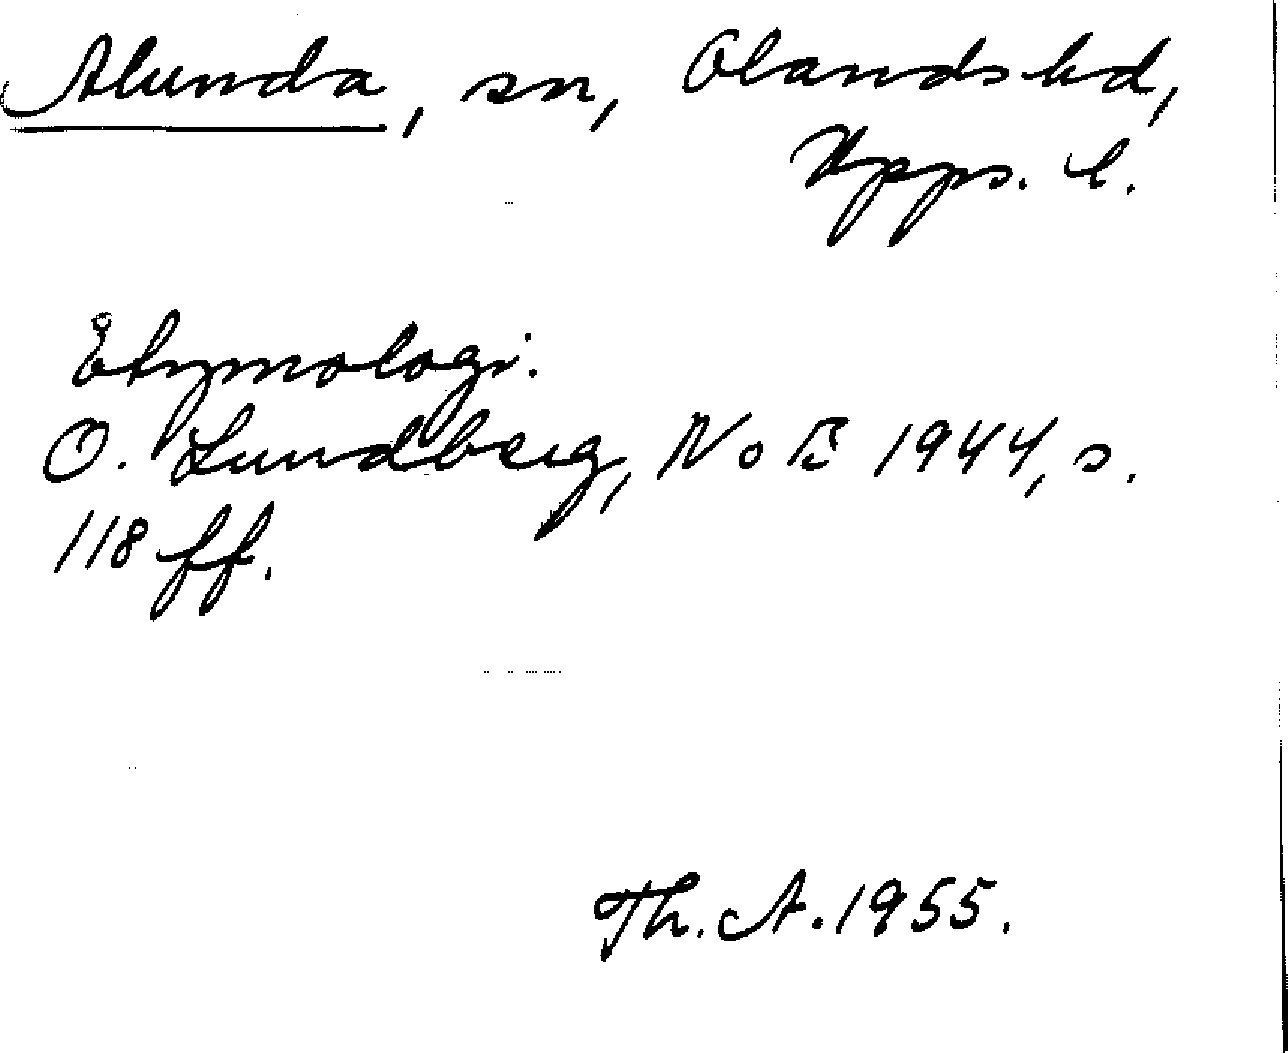 Alunda, sn, Olands hd,
Upps. l.
Etymologi.
O. Lundberg, NoB 1944, s.
118 ff.
Th. A. 1955.